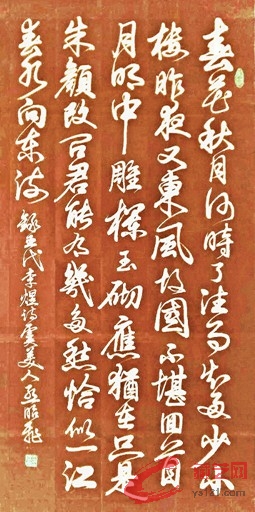 春花秋月何時了往事知多少小
楼昨夜又東風故國不堪回首
月明中雕欄玉砌應猶在只是
朱顏改問君能有幾多愁恰似一江
春水向東流 錄五代李煜詩虞美人